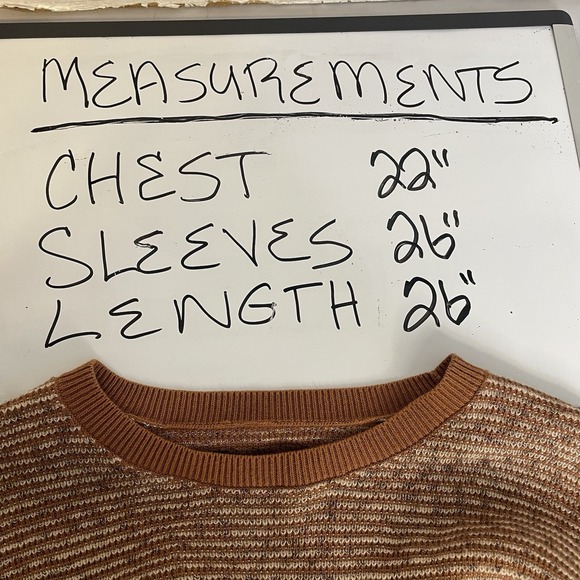 MEASUREMENTS
CHEST 22"
SLEEVES 26"
LENGTH 26"